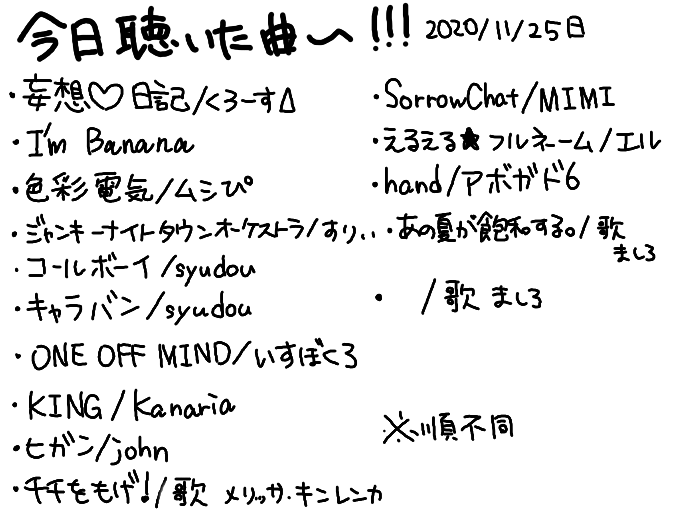 今日聴いた曲〜!!! 2020/11/25日
・妄想♡日記/くろーすΔ
・I'm Banana
・色彩電気/ムシぴ°
・ジャンキーナイトタウンオーケストラ/すりぃ
・コールボーイ/syudou
・キャラバン/syudou
・ONE OFF MIND/いすぼくろ
・KING/Kanaria
・ヒガン/john
・チチをもげ!/歌 メリッサ・キンレンカ
・SorrowChat/MIMI
・えるえる★フルネーム/エル
・hand/アボガド6
・あの夏が飽和する。/歌
ましろ
・ /歌 ましろ
※順不同